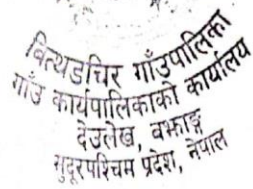 बित्थडचिर गाँउपालिका
गाँउ कार्यपालिकाको कार्यालय
देउलेख, बझाङ्ग
सुदूरपश्चिम प्रदेश, नेपाल